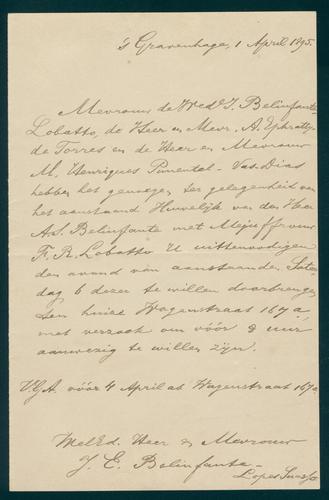 's Gravenhage, 1 April 1895.
Mevrouw de Wede. J. Belinfante-
Lobatto, de Heer en Mevr. A. Ephratty-
de Torres en de Heer en Mevrouw
M. Henriques Pimentel-Vas Dias
hebben het genoegen ter gelegenheid van
het aanstaand Huwelijk van den Heer
A.S. Belinfante met Mejuffrouw
F. R. Lobatto U uittenoodigen
den avond van aanstaanden Zater-
dag 6 dezer te willen doorbrengen
ten huize Wagenstraat 167a,
met verzoek om vóór 8 uur
aanwezig te willen zijn.
V.G.A. vóór 4 April at Wagenstraat 167a.
WelEd. Heer & Mevrouw
J. E. Belinfante-
Lopes Suasso